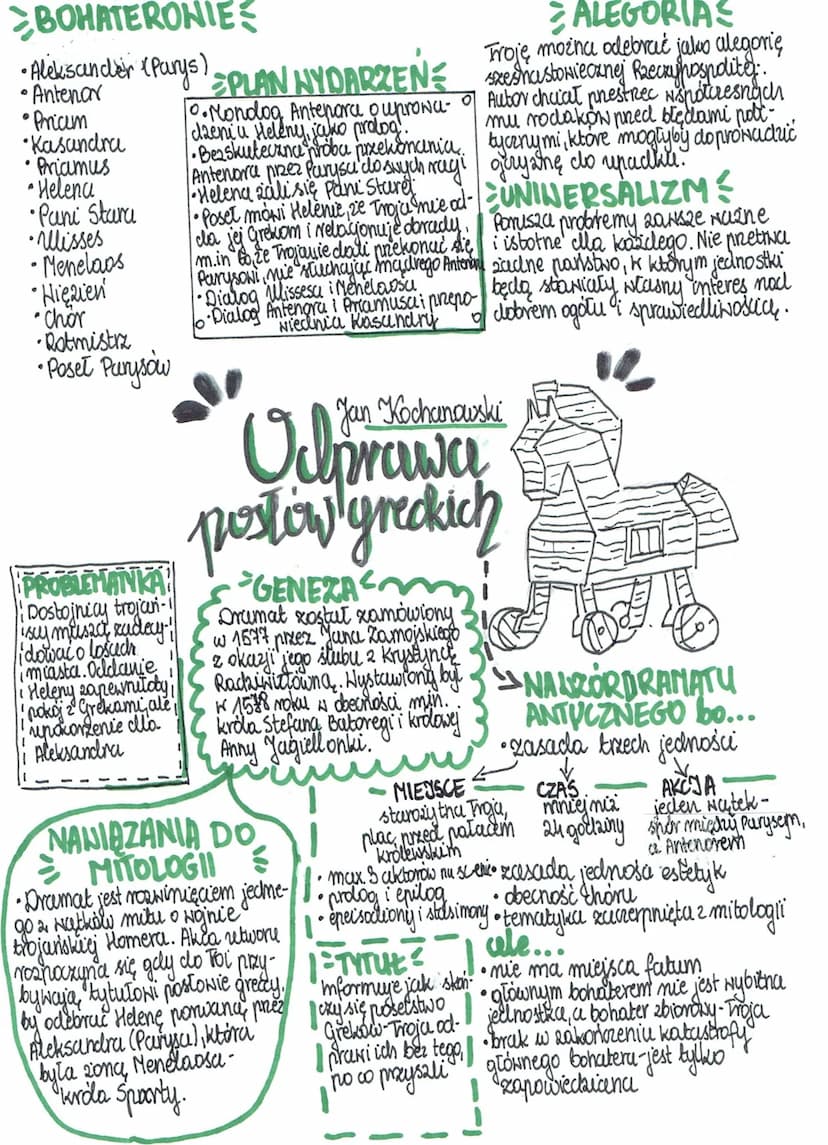 BOHATEROWIE
• Aleksander (Parys)
• Antenor
• Priam
• Kasandra
• Priamus
• Helena
• Pani Stara
• Ulisses
• Menelaos
• Więzień
• Chór
• Rotmistrz
• Poseł Parysów
PLAN WYDARZEŃ
• Monolog Antenora o uprowa-
dzeniu Heleny, jako prolog.
• Bezskuteczna próba przekonania
Antenora przez Parysa do swych racji
• Helena żali się Pani Starej
• Poseł mówi Helenie, że Troja nie od-
da jej Grekom i relacjonuje obrady,
m.in to, że Trojanie dali przekonać się
Parysowi, nie słuchając mądrego Antenora
• Dialog Ulissesa i Menelaosa
• Dialog Antenora i Priamusa i przepo-
wiednia Kasandry
ALEGORIA
Troję można odebrać jako alegorię
szesnastowiecznej Rzeczypospolitej.
Autor chciał przestrzec współczesnych
mu rodaków przed błędami poli-
tycznymi, które mogłyby doprowadzić
ojczyznę do upadku.
UNIWERSALIZM
Porusza problemy zawsze ważne
i istotne dla każdego. Nie przetrwa
żadne państwo, w którym jednostki
będą stawiały własny interes nad
dobrem ogółu i sprawiedliwością.
Jan Kochanowski
Odprawa
posłów greckich
PROBLEMATYKA
Dostojnicy trojań-
scy muszą zadecy-
dować o losach
miasta. Oddanie
Heleny zapewniłoby
pokój z Grekami, ale
upokorzenie dla
Aleksandra
GENEZA
Dramat został zamówiony
w 1577 przez Jana Zamojskiego
z okazji jego ślubu z Krystyną
Radziwiłłówną. Wystawiony był
w 1578 roku w obecności min.
króla Stefana Batorego i królowej
Anny Jagiellonki.
NAWIĄZANIA DO
MITOLOGII
• Dramat jest rozwinięciem jedne-
go z wątków mitu o wojnie
trojańskiej Homera. Akcja utworu
rozpoczyna się gdy do Troi przy-
bywają tytułowi posłowie greccy,
by odebrać Helenę porwaną przez
Aleksandra (Parysa), która
była żoną Menelaosa-
króla Sparty.
NA WZÓR DRAMATU
ANTYCZNEGO bo...
• zasada trzech jedności
MIEJSCE
starożytna Troja,
plac przed pałacem
królewskim
CZAS
mniej niż
24 godziny
AKCJA
jeden wątek-
spór między Parysem,
a Antenorem
• max 3 aktorów na scenie
• prolog i epilog
• epeisodiony i stasimony
• zasada jedności estetyk
• obecność chóru
• tematyka zaczerpnięta z mitologii
TYTUŁ
Informuje jak skoń-
czy się poselstwo
Greków-Troja od-
prawi ich bez tego,
po co przyszli
ale...
• nie ma miejsca fatum
• głównym bohaterem nie jest wybitna
jednostka, a bohater zbiorowy-Troja
• brak w zakończeniu katastrofy
głównego bohatera-jest tylko
zapowiedziana